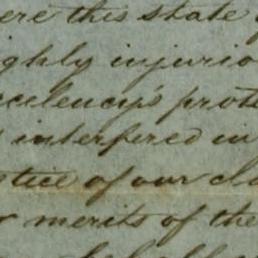 ere this state
ighly injurio
ccelency's prote
interfered in
stice of our cla
merits of the